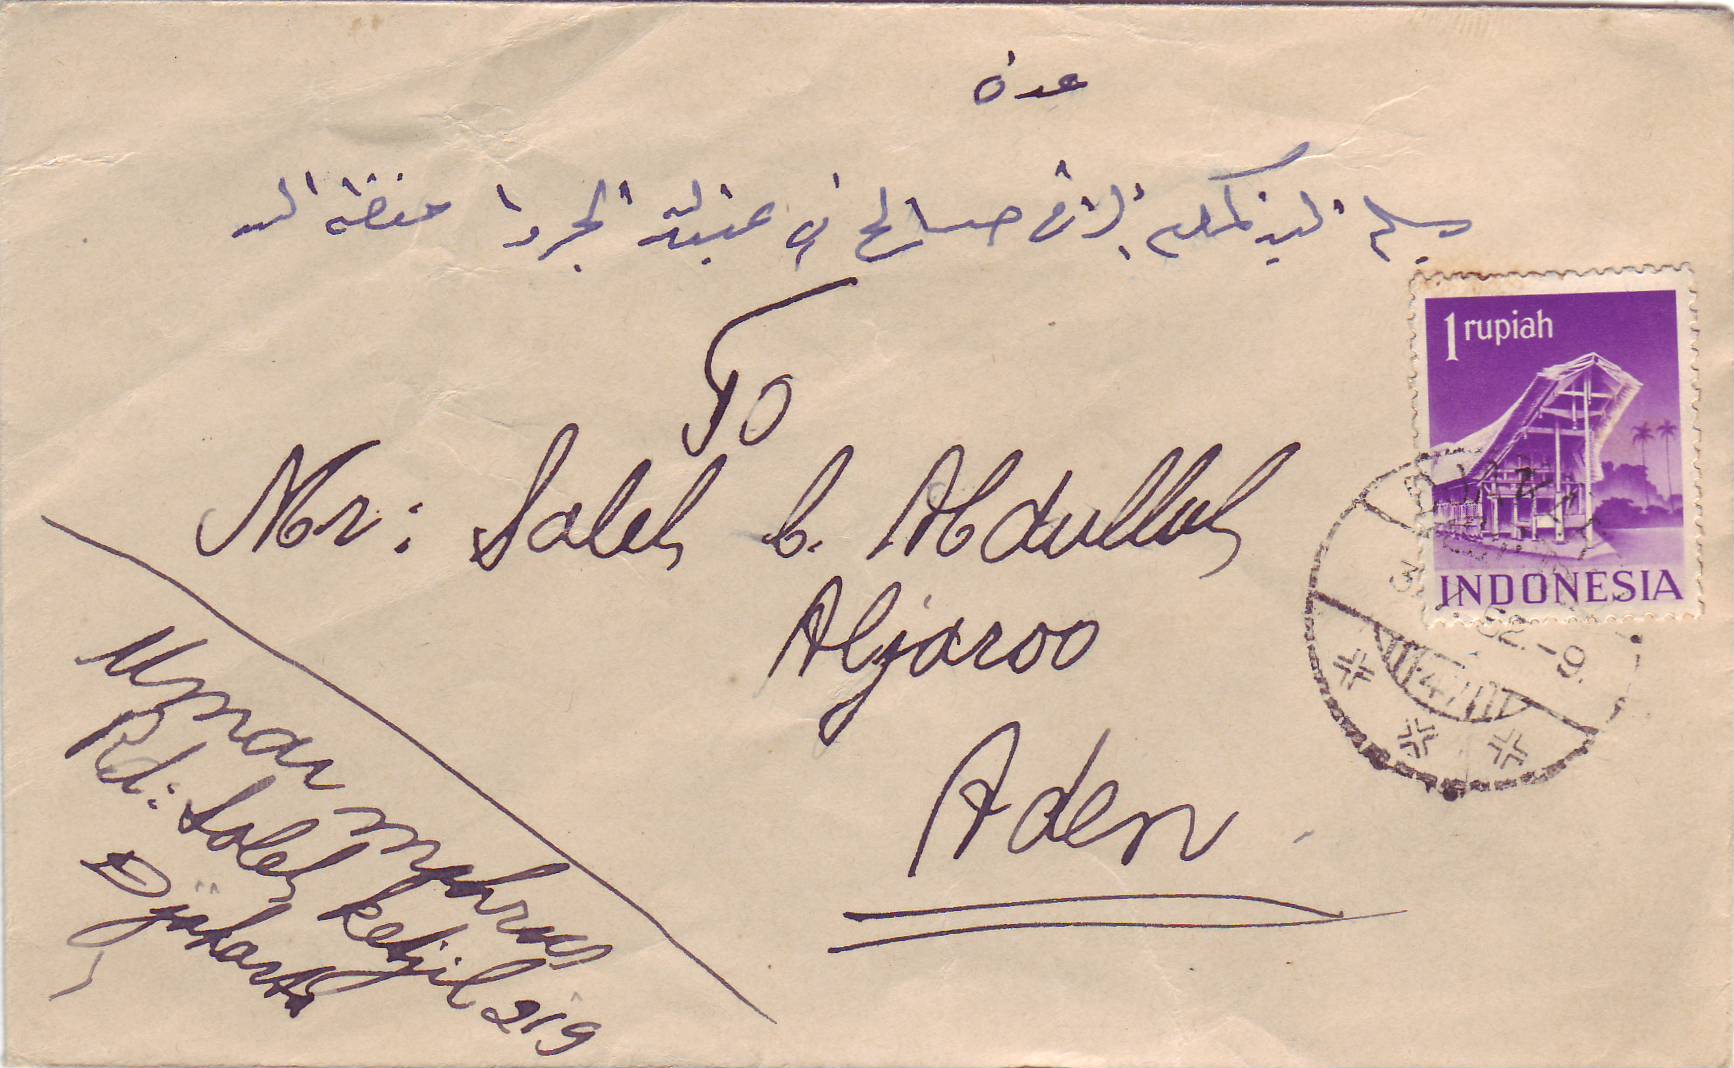 عدن
يسلم ليد المكرم الاخ صالح بن عبدالله الجرو حفظه الله
To
Mr: Saleh b. Abdullah
Aljaroo
Aden
1 rupiah
INDONESIA
Umar
Rd: Saleh ketjil 219
Djakarta
52.-9.
4